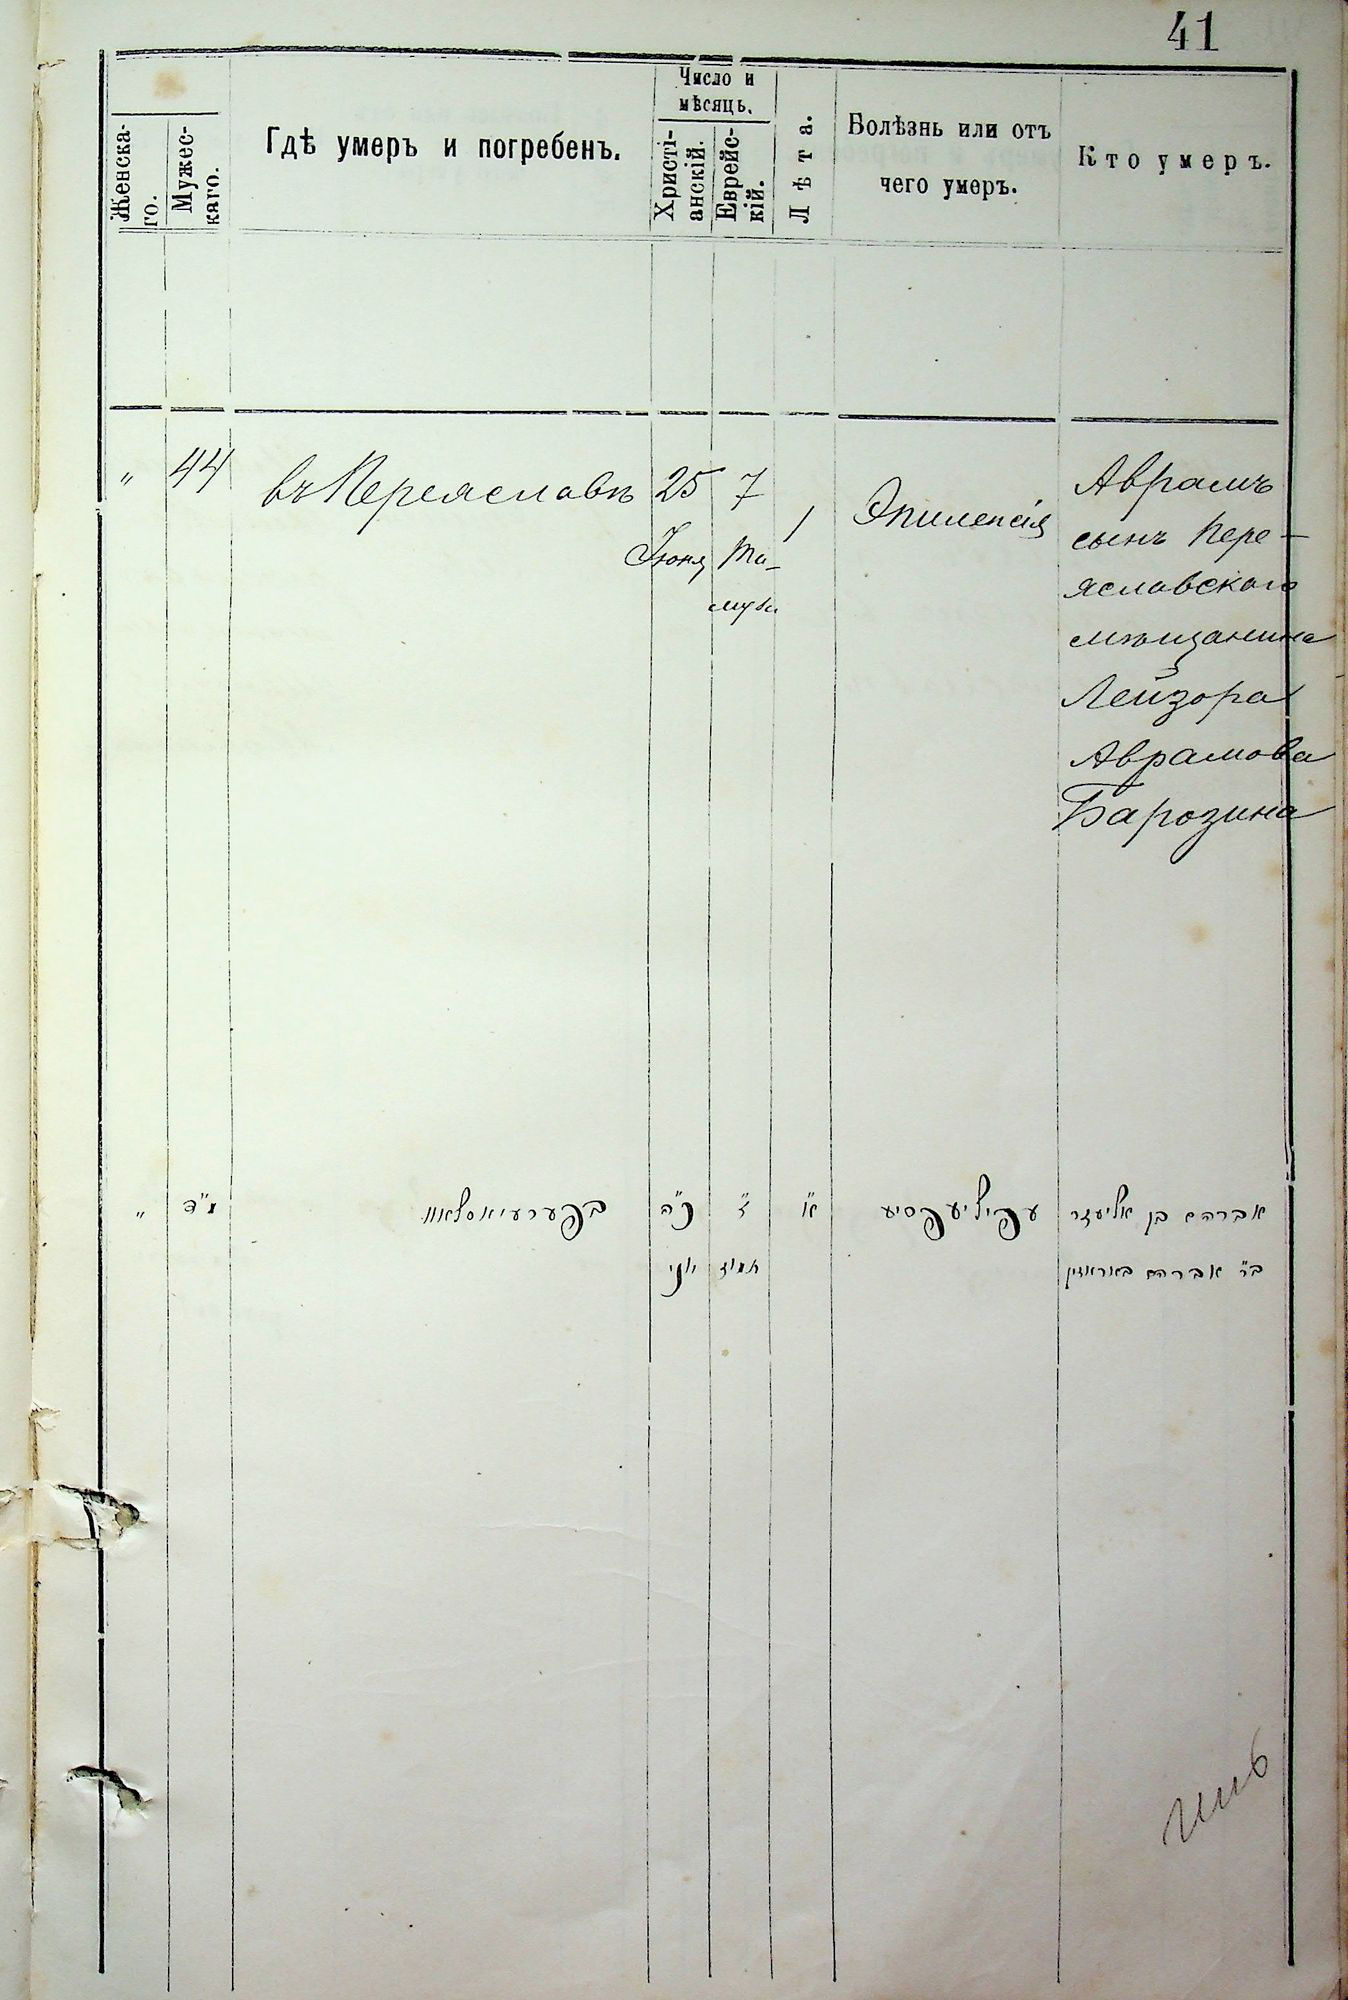 41
Женска-
го.
Мужес-
каго.
Гдѣ умеръ и погребенъ.
Число и
мѣсяцъ.
Христі-
анскій.
Еврейс-
кій.
Лѣта.
Болѣзнь или отъ
чего умеръ.
Кто умеръ.
„ 44 въ Переяславѣ 25 7 1 Эпилепсія Аврамъ
Іюня Та-
муза
сынъ Пере-
яславскаго
мѣщанина
Лейзора
Аврамова
Барозина
„ מ״ד בפערעיאסלאוו כ״ה ז״ א״ עפיליעפסיע אברהם בן אליעזר
יוני תמוז ב״ר אברהם באראזין